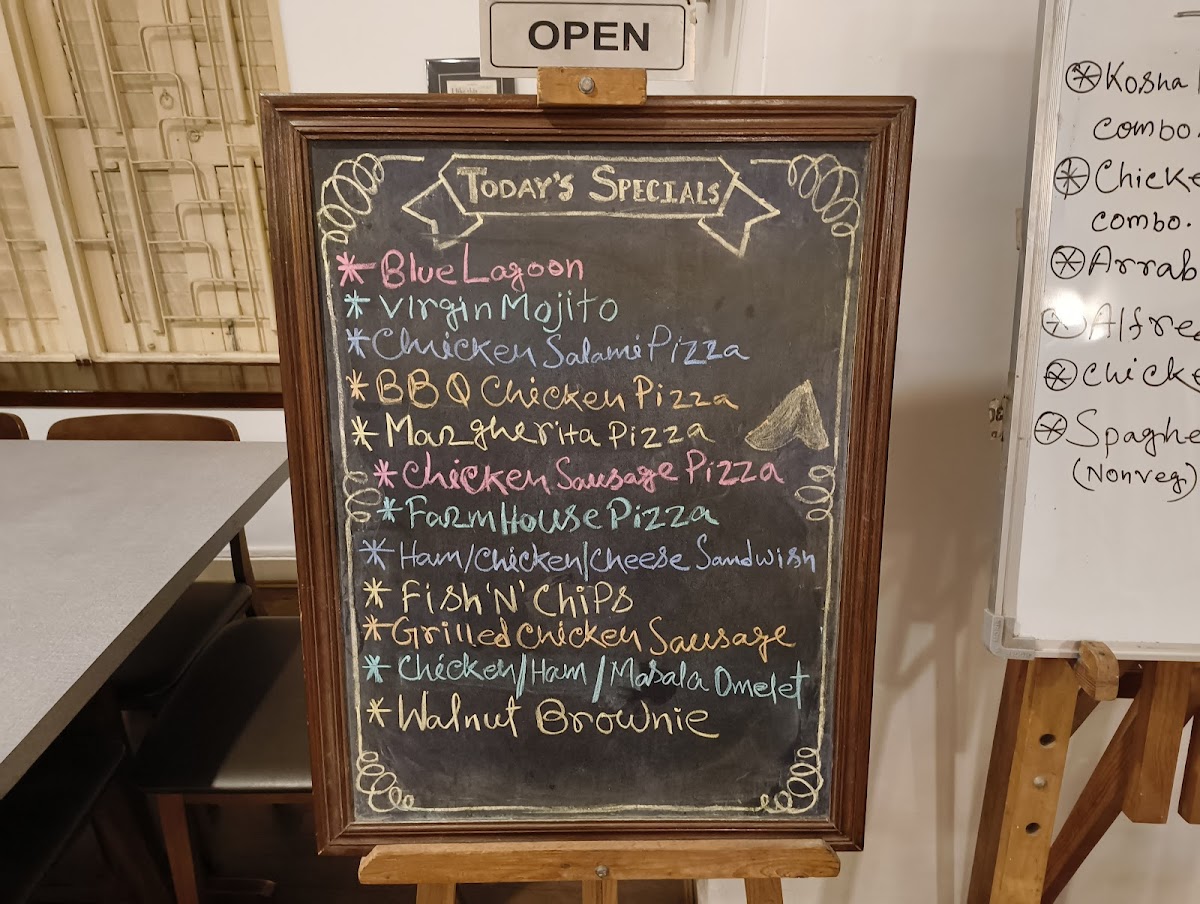 OPEN
TODAY'S SPECIALS
* Blue Lagoon
* Virgin Mojito
* Chicken Salami Pizza
* BBQ Chicken Pizza
* Margherita Pizza
* Chicken Sausage Pizza
* Farm House Pizza
* Ham/Chicken/Cheese Sandwish
* Fish 'N' Chips
* Grilled Chicken Sausage
* Chicken/Ham/Masala Omelet
* Walnut Brownie
Kosha
combo.
Chicke
combo.
Arrab
Alfre
Chicke
Spaghe
(Nonveg)